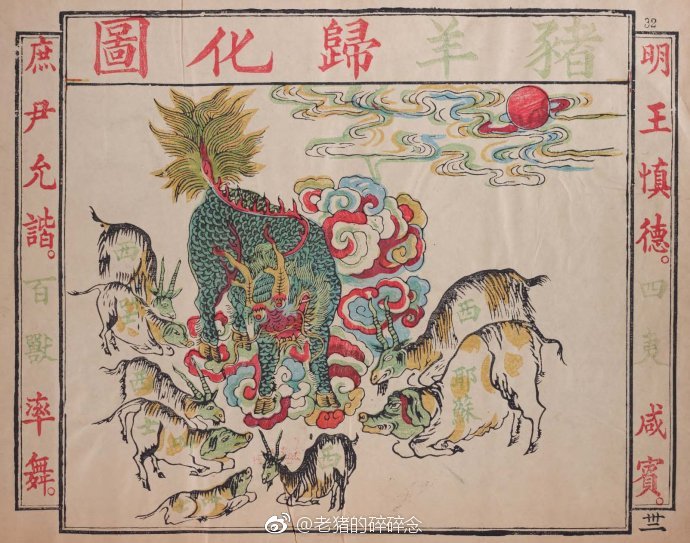 32
豬羊歸化圖
明王慎德。四夷咸賓。
卅二
庶尹允諧。百獸率舞。
西
耶蘇
西
西
西
@老猪的碎碎念